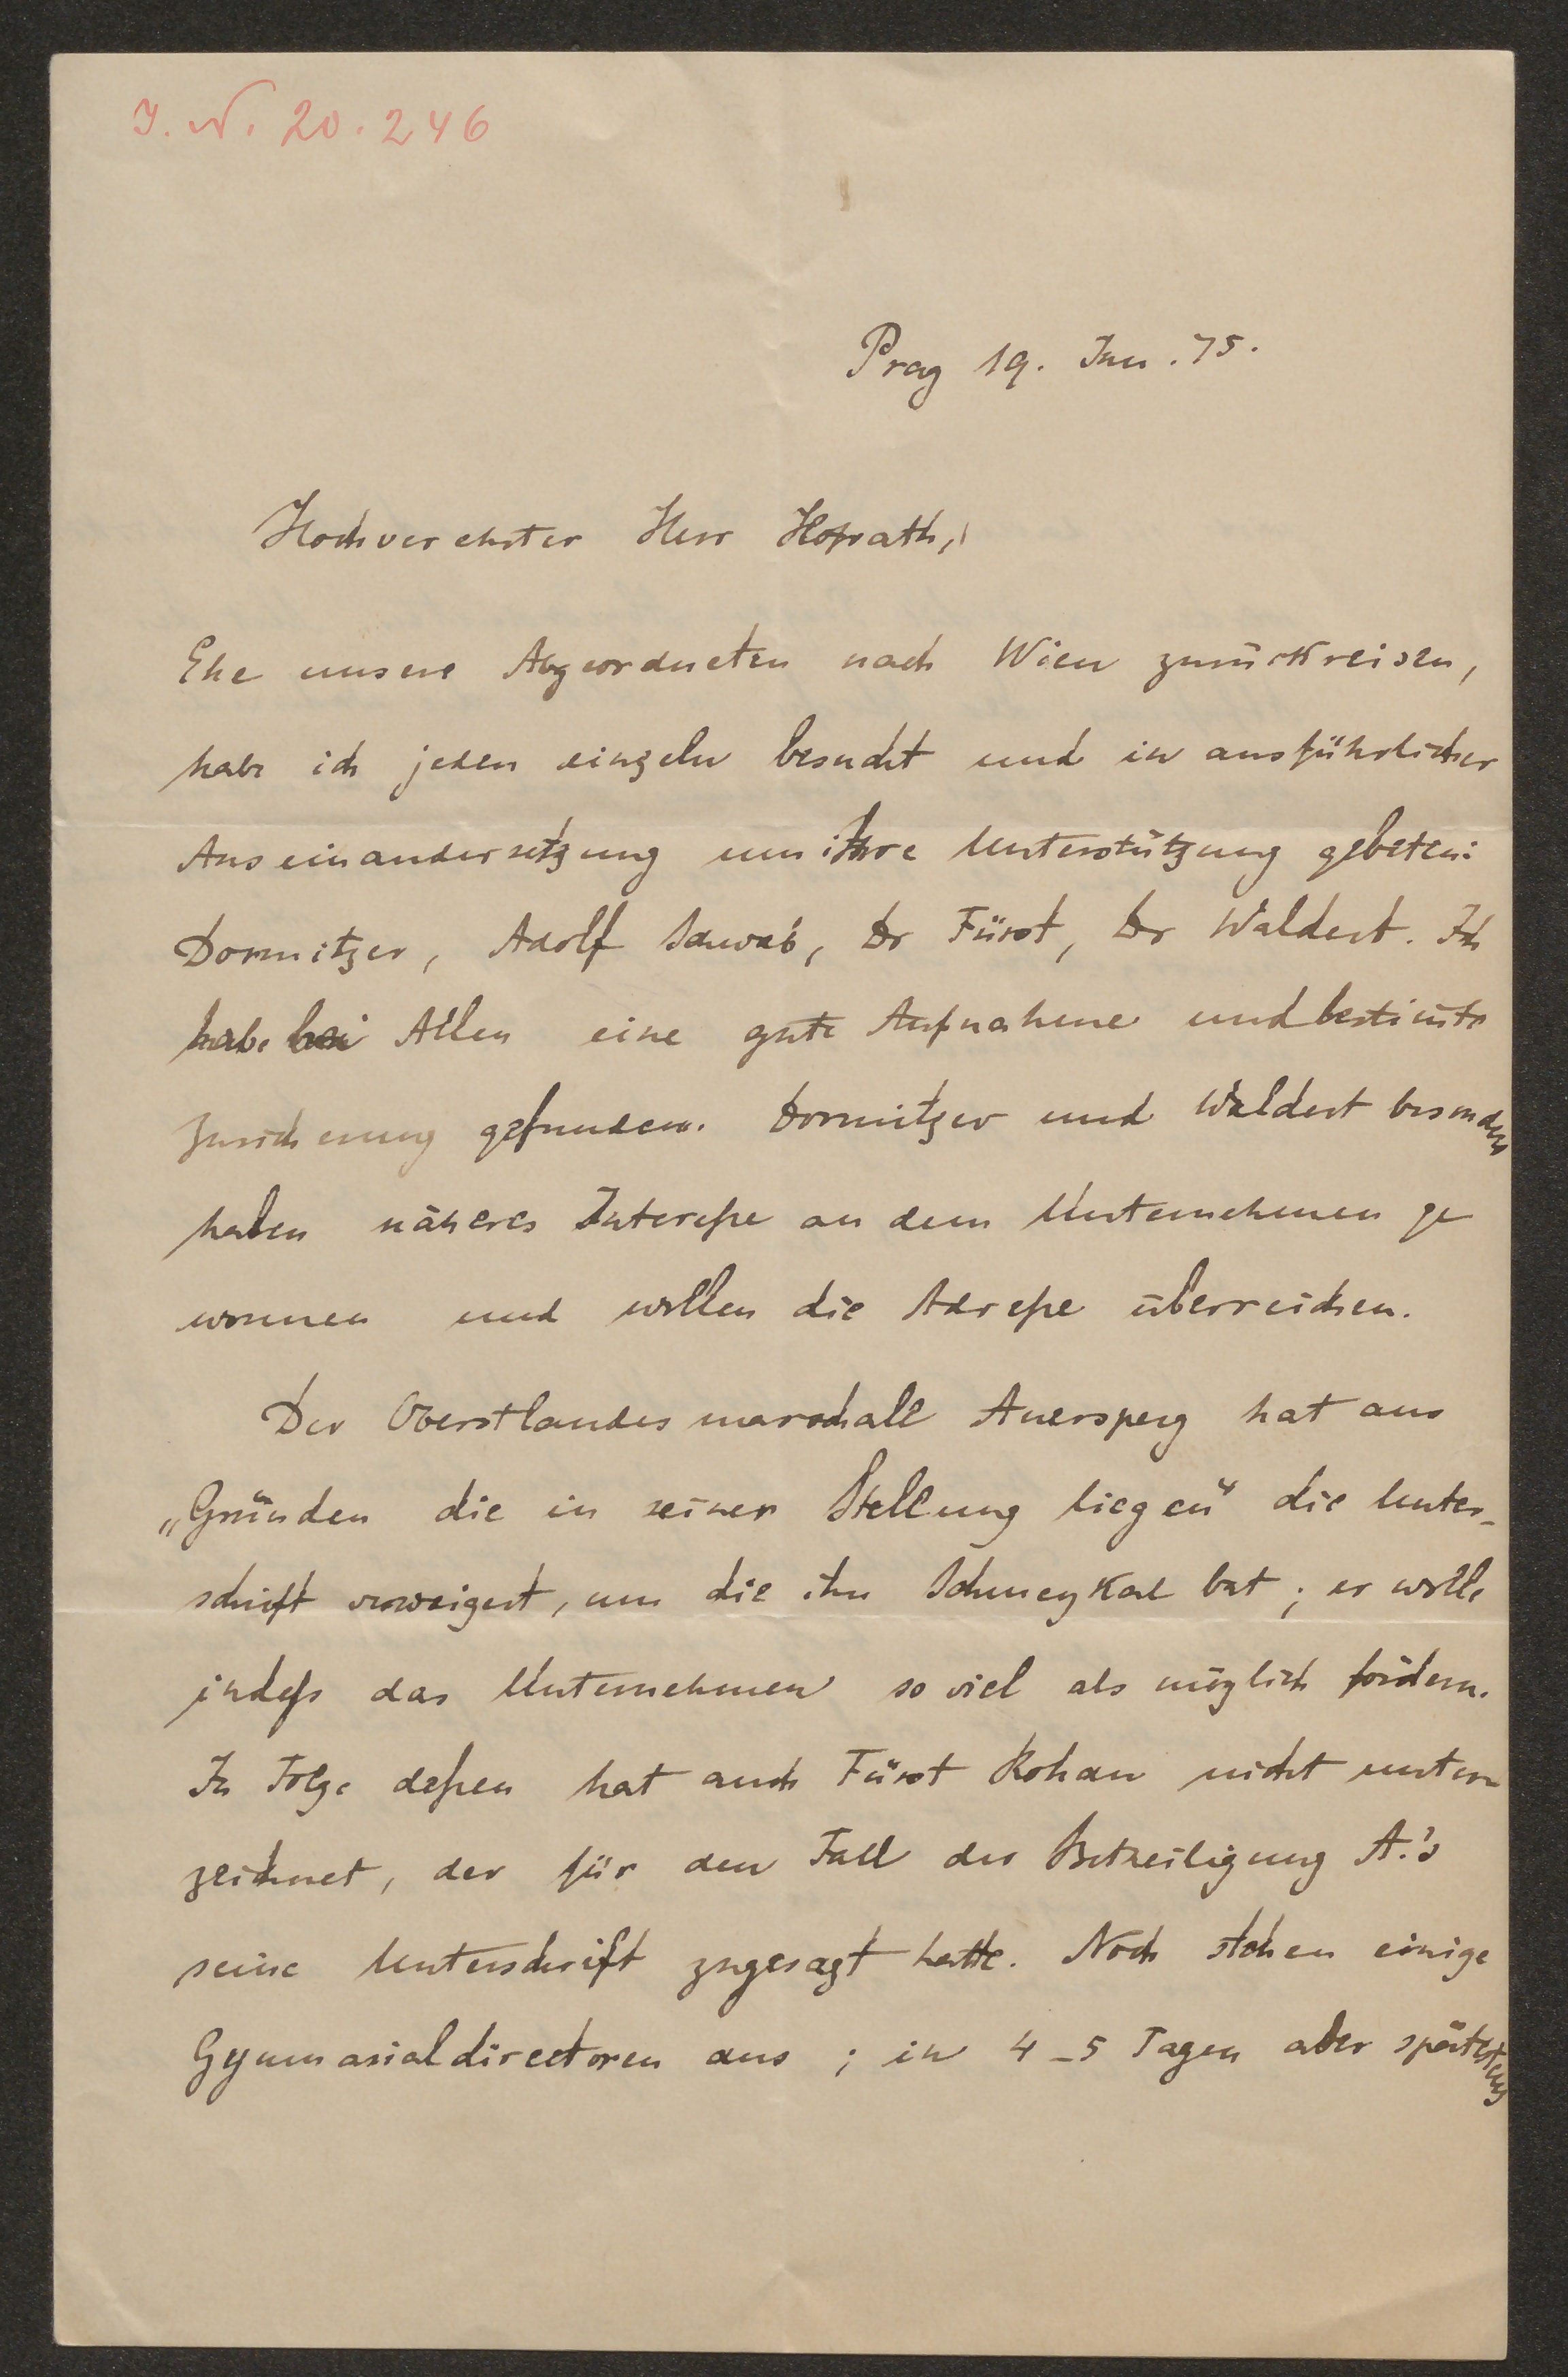 I. N. 20.246
Prag 19. Jan. 75.
Hochverehrter Herr Hofrath,
Ehe unsere Abgeordneten nach Wien zurückreisen,
habe ich jeden einzeln besucht und in ausführlicher
Auseinandersetzung um ihre Unterstützung gebeten:
Dormitzer, Adolf Schwab, Dr Fürst, Dr Waldert. Ich
habe bei Allen eine gute Aufnahme und bestim̄te
Zusicherung gefunden. Dormitzer und Waldert besonders
haben näheres Interesse an dem Unternehmen ge
wonnen und wollen die Adresse überreichen.
Der Oberstlandesmarschall Auersperg hat aus
„Gründen die in seiner Stellung liegen“ die Unter-
schrift verweigert, um die ihn Schmeykal bat; er wolle
indeß das Unternehmen so viel als möglich fördern.
In Folge dessen hat auch Fürst Rohan nicht unter
zeichnet, der für den Fall der Betheiligung A.'s
seine Unterschrift zugesagt hatte. Noch stehen einige
Gymnasialdirectoren aus; in 4-5 Tagen aber spätestens